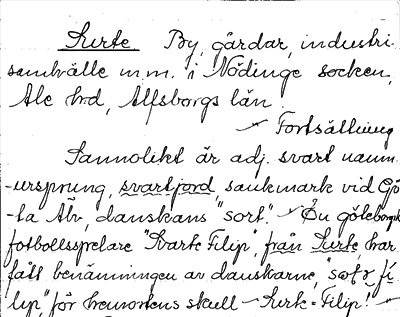 Surte. By, gårdar, industri-
samhälle m.m. i Nödinge socken,
Ale hrd, Älfsborgs län.
Fortsättning
Sannolikt är adj. svart namn-
-ursprung, svartjord sankmark vid Gö-
-ta Älv, danskans "sort". En göteborgsk
fotbollsspelare "Svarte Filip", från Surte, har
fått benämningen av danskarne,
lip", för hemortens skull – Surk-Filip!